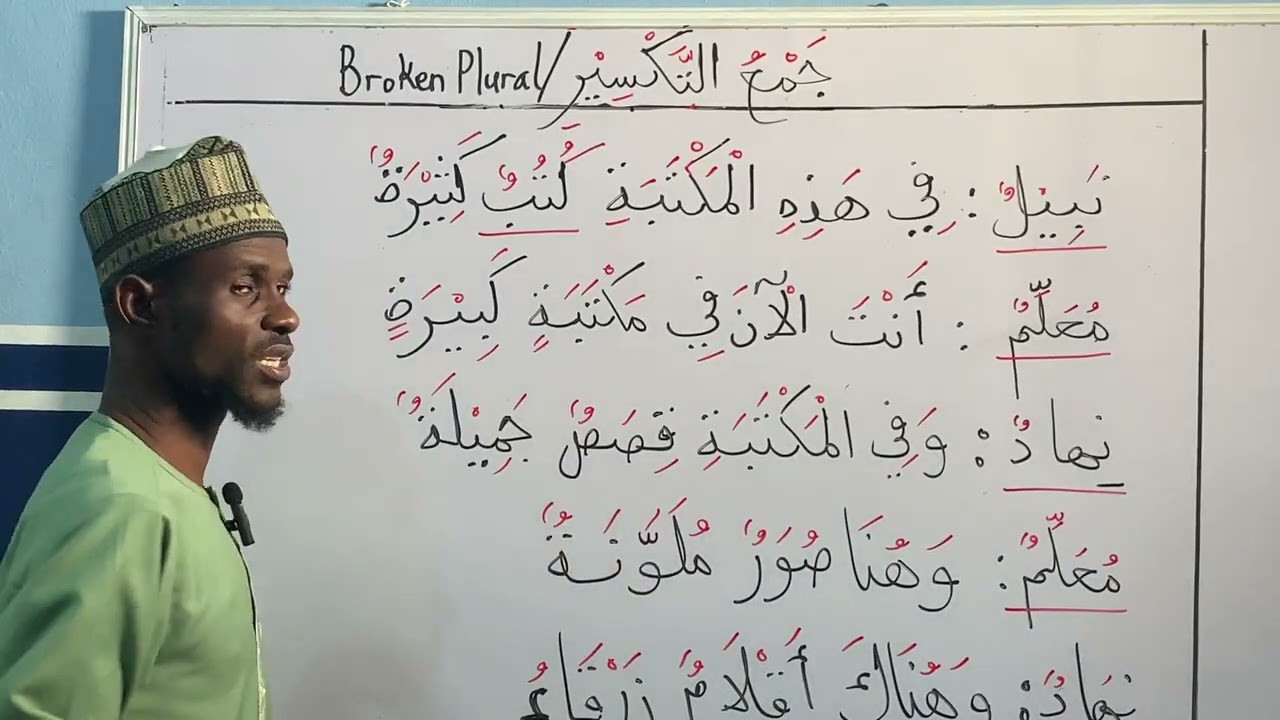 جَمْعُ التَّكْسِيْر / Broken Plural
نَبِيْلٌ : فِي هَذِهِ الْمَكْتَبَةِ كُتُبٌ كَثِيْرَةٌ
مُعَلِّمٌ : أَنْتَ الْآنَ فِي مَكْتَبَةٍ كَبِيْرَةٍ
نِهَادٌ : وَفِي الْمَكْتَبَةِ قِصَصٌ جَمِيْلَةٌ
مُعَلِّمٌ : وَهُنَا صُوَرٌ مُلَوَّنَةٌ
نِهَادٌ : وَهُنَاكَ أَقْلَامٌ زَرْقَاءُ